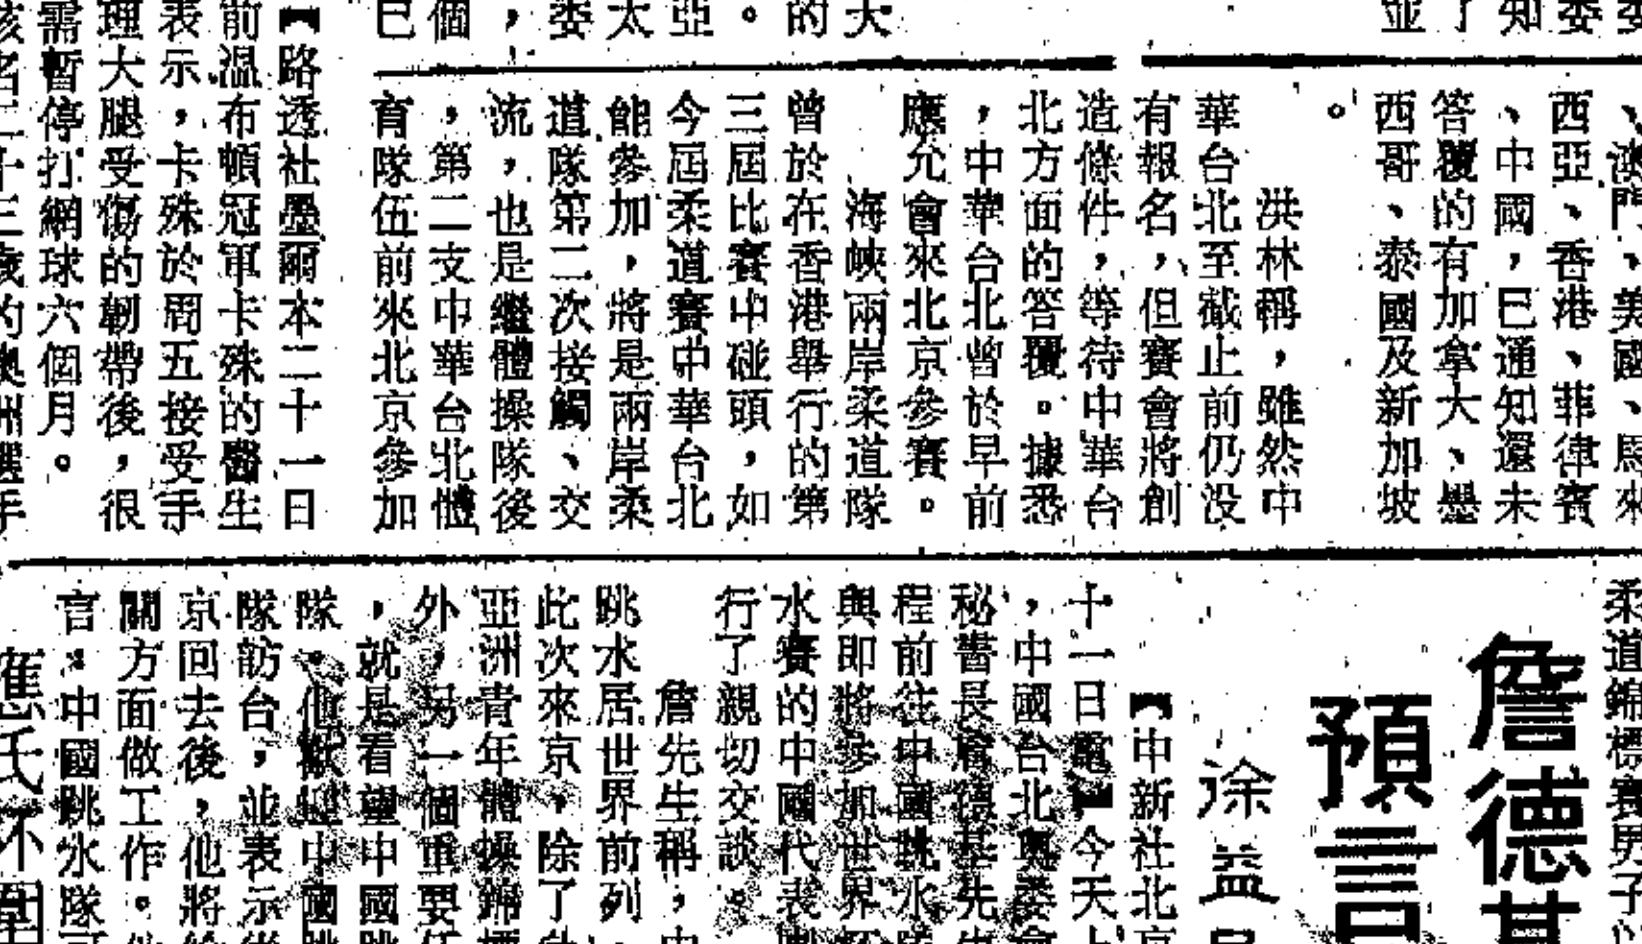 委
知委
了
並
大
的
。
亞
太
委
，
個
已
、澳門、美國、馬來
西亞、香港、菲律賓
、中國，已通知還未
答覆的有加拿大、墨
西哥、泰國及新加坡
。
洪林稱，雖然中
華台北至截止前仍没
有報名，但賽會將創
造條件，等待中華台
北方面的答覆。據悉
，中華台北曾於早前
應允會來北京參賽。
海峽兩岸柔道隊
曾於在香港舉行的第
三屆比賽中碰頭，如
今屆柔道賽中華台北
能參加，將是兩岸柔
道隊第二次接觸、交
流，也是繼體操隊後
，第二支中華台北體
育隊伍前來北京參加
【路透社墨爾本二十一日
前溫布頓冠軍卡殊的醫生
表示，卡殊於周五接受手
理大腿受傷的韌帶後，很
需暫停打網球六個月。
該名二十三歲的澳洲選手
柔道錦標賽男子
詹德基
預言
徐益
【中新社北京
十一日電】今天上
，中國台北奧委會
秘書長詹德基先生
程前往中國跳水
與即將參加世界杯
水賽的中國代表團
行了親切交談。
詹先生稱，中
跳水居世界前列，
此次來京，除了
亞洲青年體操錦標
外，另一個重要任
，就是看望中國跳
隊。他歡迎中國跳
隊訪台，並表示從
京回去後，他將
關方面做工作。他
言：中國跳水隊可
應氏杯圍